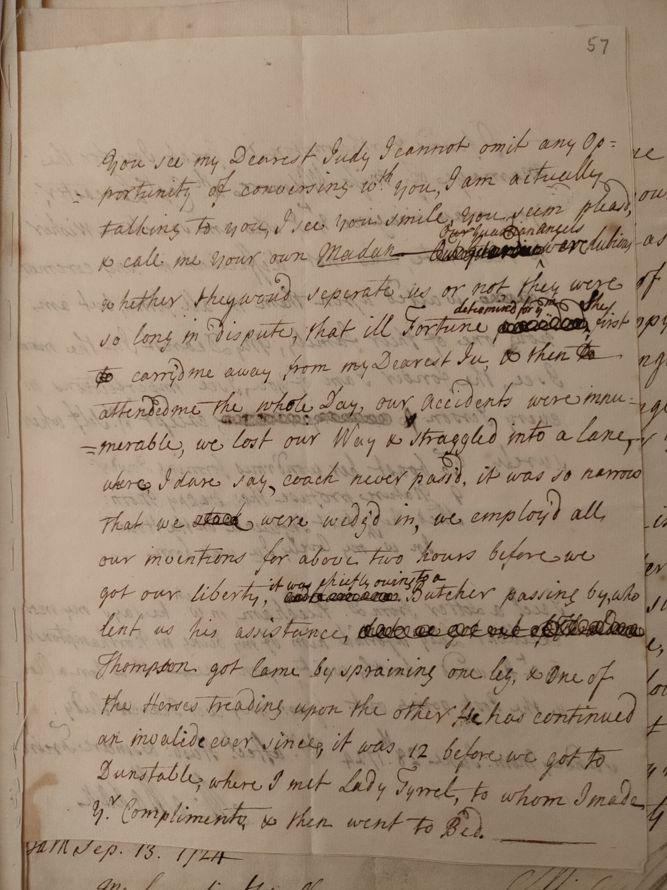 57
You see my Dearest Judy I cannot omit any Op=
=portunity of conversing wth you, I am actually
talking to you, I see you smile, you seem pleasd,
& call me your own Madan our guardian angels were
whether they would seperate us or not they were
so long in dispute, that ill Fortune determind for ym She first
to carrydme away from my Dearest Ju, & then to
attendedme the whole Day, our Accidents were innu=
=merable, we lost our Way & straggled into a lane,
where, I dare say, coach never pass'd, it was so narrow
that we stuck were wedg'd in, we employ'd all
our inventions for above two hours before we
got our liberty, it was chiefly owing to a Butcher passing by, who
lent us his assistance,
Thompson got lame by spraining one leg, & one of
the Horses treading upon the other He has continued
an invalide ever since, it was 12 before we got to
Dunstable, where I met Lady Tyrrel, to whom I made
yr Compliments, & then went to Bed.
Sep. 13. 1724